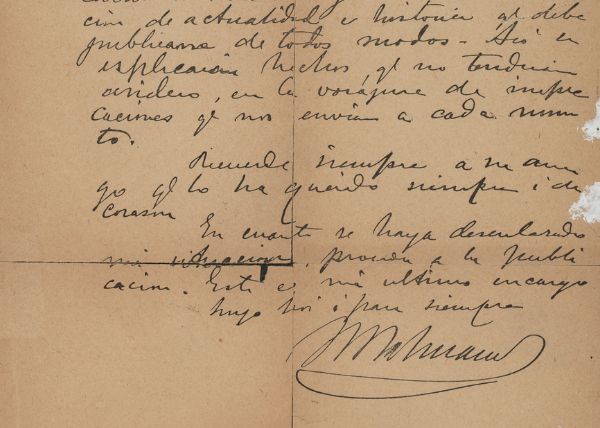 cion de actualidad e historica qe debe
publicarse de todos modos - Asi
esplicacion hechos, qe no tendrian
asidero, en la voragine de impre
caciones qe nos envian a cada momen
to.
Recuerde siempre a su ami
go qe lo ha querido siempre i de
corazon
En cuanto se haya desenlasado
mi situacion, proceda a la publi
cacion. Este es mi ultimo encargo
Suyo hoi i para siempre